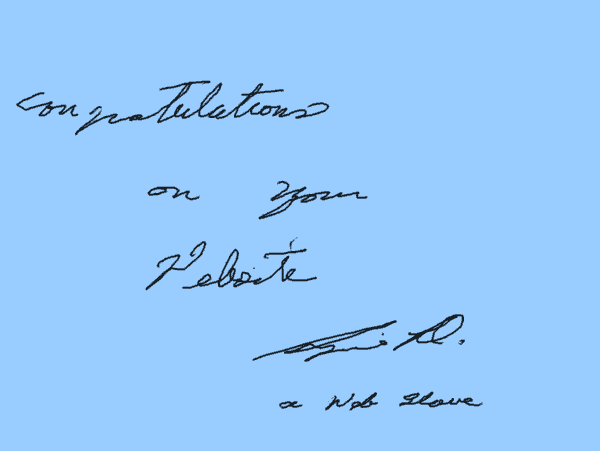 Congratulations
on your
Website
D.
a Web Slave